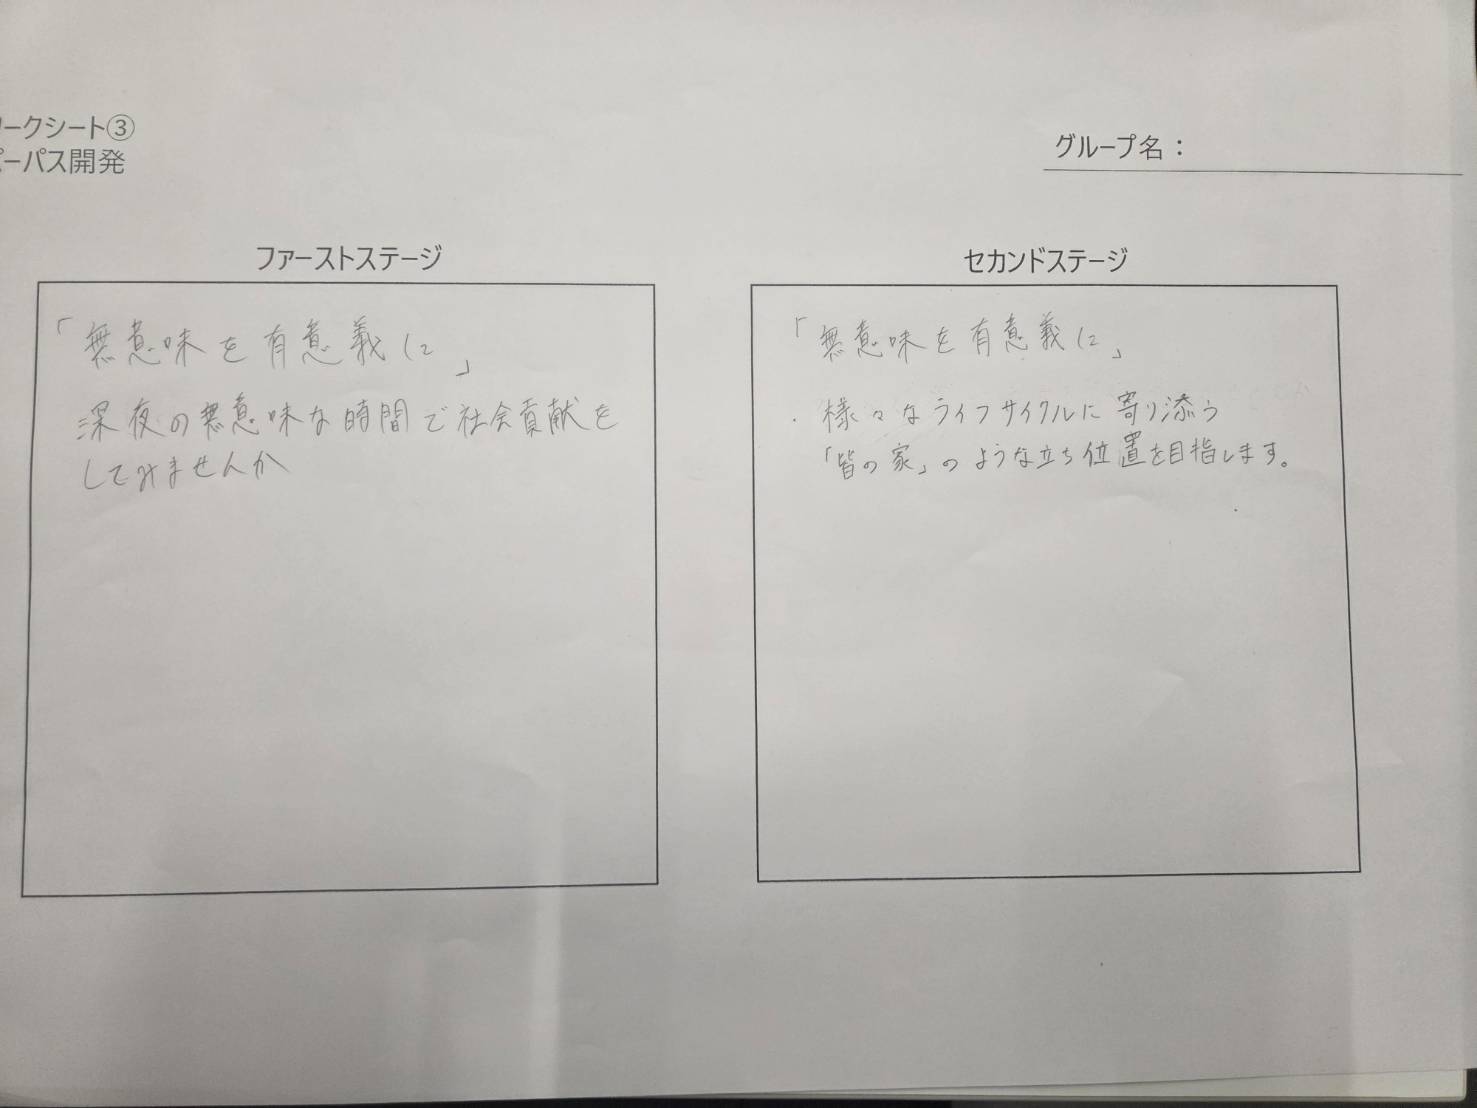 ワークシート③
パーパス開発
グループ名：
ファーストステージ
「無意味を有意義に」
深夜の無意味な時間で社会貢献を
してみませんか
セカンドステージ
「無意味を有意義に」
・様々なライフサイクルに寄り添う
「皆の家」のような立ち位置を目指します。